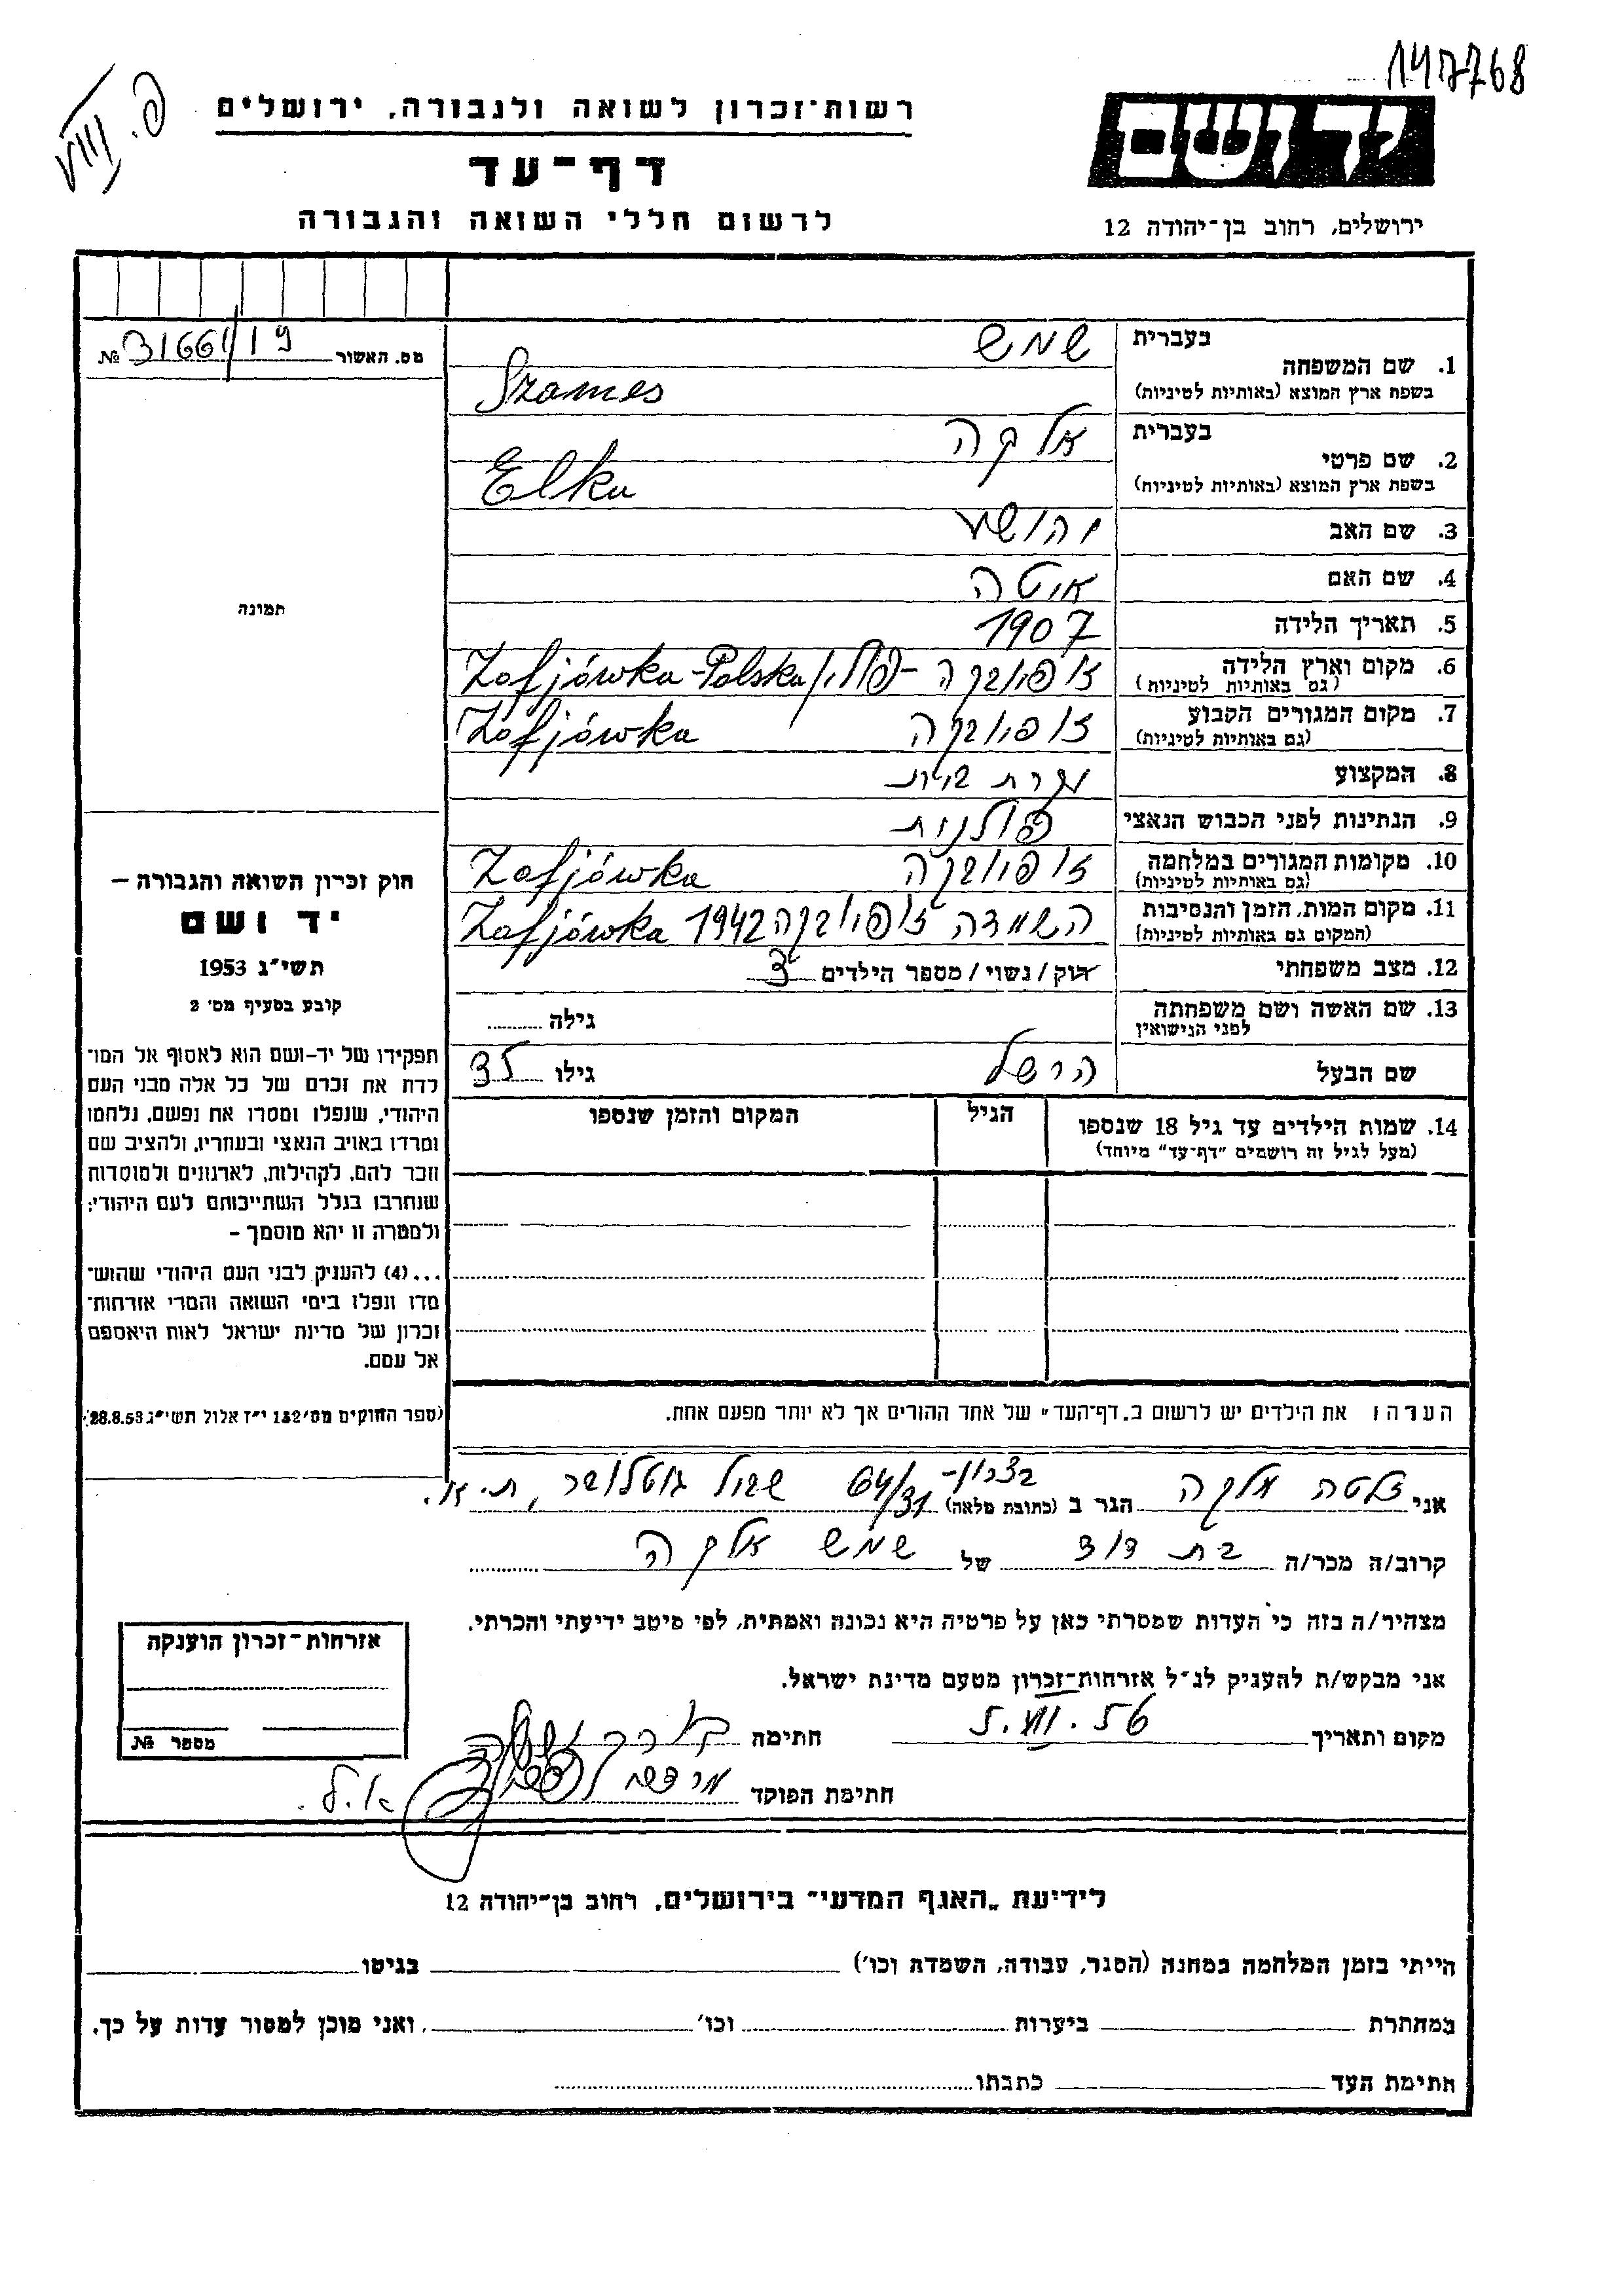 147768
יד ושם
רשות־זכרון לשואה ולגבורה, ירושלים
דף־עד
לרשום חללי השואה והגבורה
ירושלים, רחוב בן־יהודה 12
מס. האשור 31661/19 №
תמונה
חוק זכרון השואה והגבורה –
יד ושם
תשי״ג 1953
קובע בסעיף מס׳ 2
תפקידו של יד־ושם הוא לאסוף אל המו־
לדת את זכרם של כל אלה מבני העם
היהודי, שנפלו ומסרו את נפשם, נלחמו
ומרדו באויב הנאצי ובעוזריו, ולהציב שם
וזכר להם, לקהילות, לארגונים ולמוסדות
שנחרבו בגלל השתייכותם לעם היהודי;
ולמטרה זו יהא מוסמך –
...(4) להעניק לבני העם היהודי שהוש־
מדו ונפלו בימי השואה והמרי אזרחות־
זכרון של מדינת ישראל לאות היאספם
אל עמם.
(ספר החוקים מס׳ 132 י״ז אלול תשי״ג 28.8.53)
1. שם המשפחה
בעברית שמש
בשפת ארץ המוצא (באותיות לטיניות) Szames
2. שם פרטי
בעברית אלקה
בשפת ארץ המוצא (באותיות לטיניות) Elka
3. שם האב יהושע
4. שם האם איטה
5. תאריך הלידה 1907
6. מקום וארץ הלידה (גם באותיות לטיניות) זופיובקה – פולין Zofjówka-Polska
7. מקום המגורים הקבוע (גם באותיות לטיניות) זופיובקה Zofjówka
8. המקצוע עקרת בית
9. הנתינות לפני הכבוש הנאצי פולנית
10. מקומות המגורים במלחמה (גם באותיות לטיניות) זופיובקה Zofjówka
11. מקום המות, הזמן והנסיבות (המקום גם באותיות לטיניות) השמדה זופיובקה 1942 Zofjówka
12. מצב משפחתי רוק / נשוי / מספר הילדים 3
13. שם האשה ושם משפחתה לפני הנישואין גילה
שם הבעל הרשל גילו 35
14. שמות הילדים עד גיל 18 שנספו (מעל לגיל זה רושמים "דף־עד" מיוחד) הגיל המקום והזמן שנספו
הערה: את הילדים יש לרשום ב„דף־העד" של אחד ההורים אך לא יותר מפעם אחת.
אני אלקה הגר ב (כתובת מלאה) בצרון־ 64/31
קרוב/ה מכר/ה בת דוד של שמש אלקה
מצהיר/ה בזה כי העדות שמסרתי כאן על פרטיה היא נכונה ואמתית, לפי מיטב ידיעתי והכרתי.
אני מבקש/ת להעניק לנ״ל אזרחות־זכרון מטעם מדינת ישראל.
מקום ותאריך חתימה
חתימת הפוקד
א.ל.
אזרחות־זכרון הוענקה
מספר №
לידיעת „האגף המדעי" בירושלים, רחוב בן־יהודה 12
הייתי בזמן המלחמה במחנה (הסגר, עבודה, השמדה וכו׳) בגיטו
במחתרת ביערות וכו׳ ואני מוכן למסור עדות על כך.
חתימת העד כתבתו